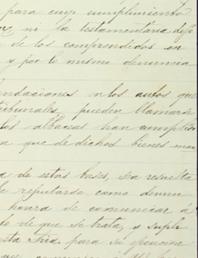 para cuyo cumplimiento
ni la testamentaria de
de los comprendidos en
y por lo mismo denuncia
ndaciones en los autos que
tribunales, pueden llamarse
los albaceas han cumplido
a que de dichos bienes
a de estas bases, ha resuelto
reputarse como denun
hará de comunicar á
lo de que se trata, y suple
esta Sría para su